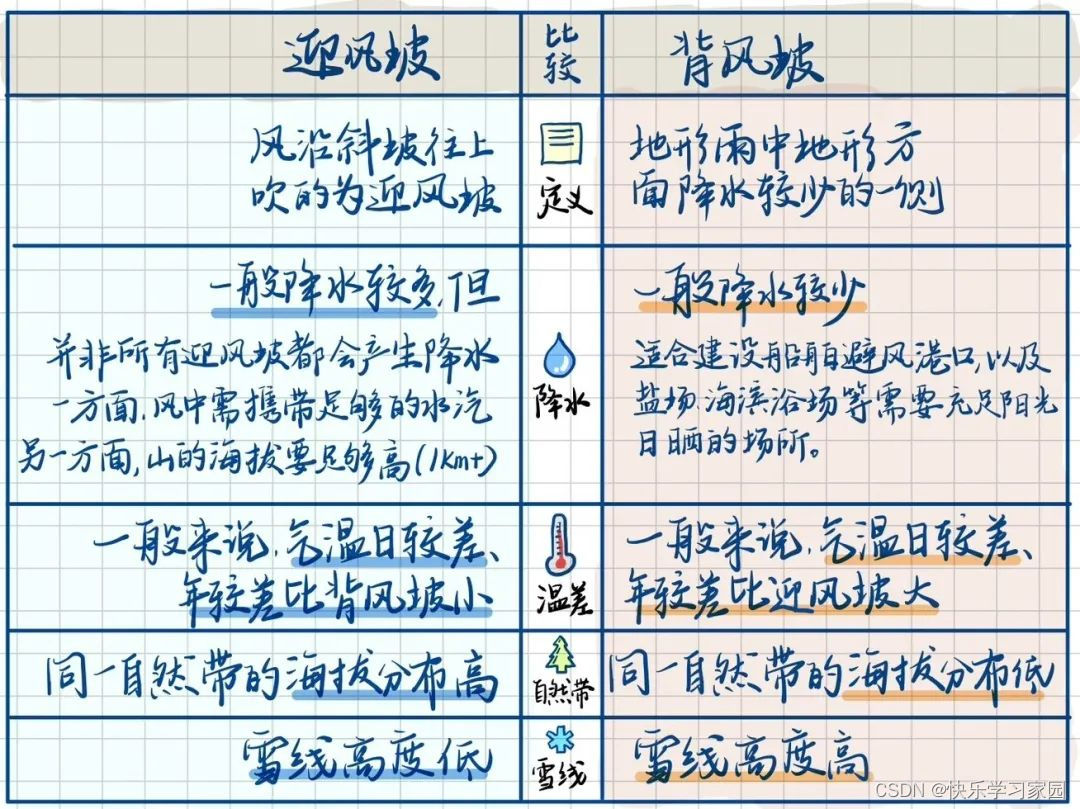 迎风坡 比较 背风坡
风沿斜坡往上
吹的为迎风坡
定义
地形雨中地形方
面降水较少的一侧
一般降水较多,但
并非所有迎风坡都会产生降水
一方面,风中需携带足够的水汽
另一方面,山的海拔要足够高(1km+)
降水
一般降水较少
适合建设船舶避风港口,以及
盐场、海滨浴场等需要充足阳光
日晒的场所。
一般来说,气温日较差、
年较差比背风坡小
温差
一般来说,气温日较差、
年较差比迎风坡大
同一自然带的海拔分布高
自然带
同一自然带的海拔分布低
雪线高度低
雪线
雪线高度高
CSDN @快乐学习家园